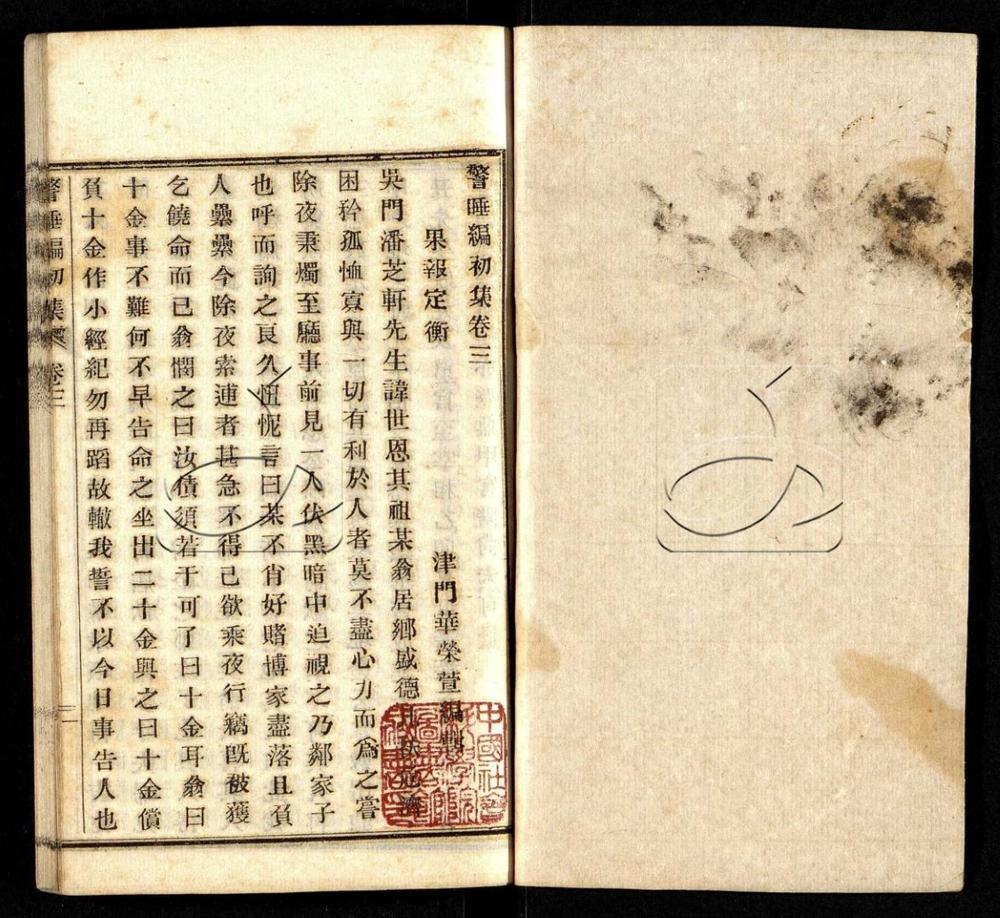 警睡編初集卷三
果報定衡 津門華榮萱編輯
吳門潘芝軒先生諱世恩其祖某翁居鄉盛德凡扶危濟
困矜孤恤寡與一切有利於人者莫不盡心力而為之嘗
除夜秉燭至廳事前見一人伏黑暗中迫視之乃鄰家子
也呼而詢之良久忸怩言曰某不肖好賭博家盡落且負
人纍纍今除夜索逋者甚急不得已欲乘夜行竊旣被獲
乞饒命而已翁憫之曰汝債須若干可了曰十金耳翁曰
十金事不難何不早告命之坐出二十金與之曰十金償
負十金作小經紀勿再蹈故轍我誓不以今日事告人也
警睡編初集 卷三
一
中國社會科學院
圖書館